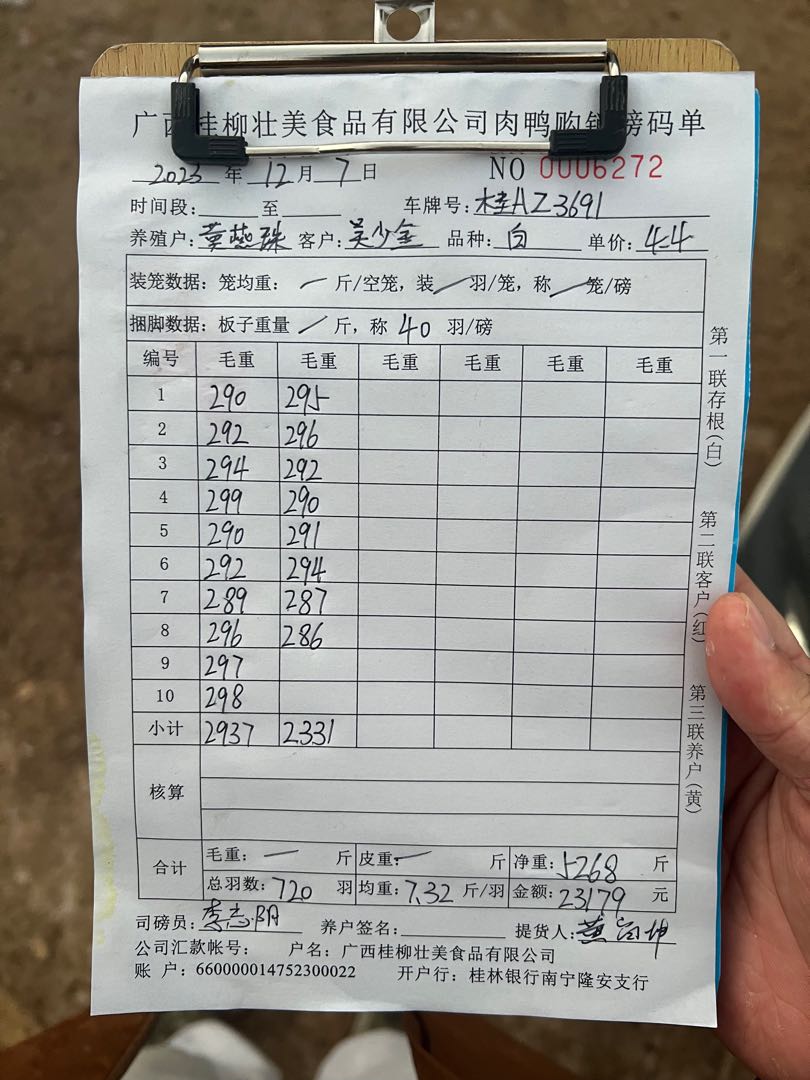 广西桂柳壮美食品有限公司肉鸭购销磅码单
2023年12月7日 NO 0006272
时间段:____至____ 车牌号:桂AZ3691
养殖户:黄燕珠 客户:吴少金 品种:白 单价:4.4
装笼数据:笼均重: 一 斤/空笼,装 / 羽/笼,称 / 笼/磅
捆脚数据:板子重量 / 斤,称 40 羽/磅
编号 毛重 毛重 毛重 毛重 毛重 毛重
1 290 295
2 292 296
3 294 292
4 299 290
5 290 291
6 292 294
7 289 287
8 296 286
9 297
10 298
小计 2937 2331
核算
合计 毛重: 一 斤 皮重: 一 斤 净重: 5268 斤
总羽数: 720 羽 均重: 7.32 斤/羽 金额: 23179 元
司磅员:李志阳 养户签名: 提货人:黄
公司汇款帐号: 户名:广西桂柳壮美食品有限公司
账 户:660000014752300022 开户行:桂林银行南宁隆安支行
第一联存根(白)
第二联客户(红)
第三联养户(黄)